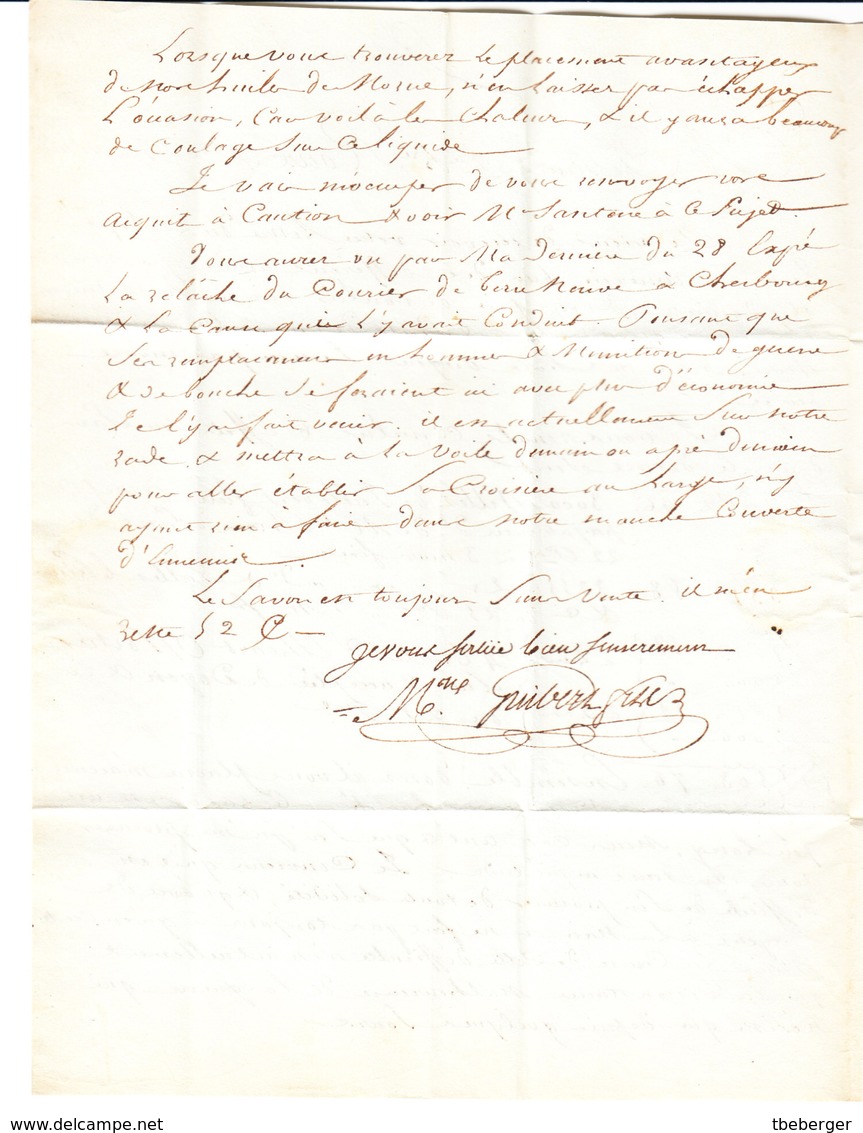 Lorsque vous trouverez le placement avantageux
de nore huile de Morue, n'en laissez pas échapper
l'occasion, Car voilà les Chaleurs, & il y aura beaucoup
de Coulage sur ce liquide
Je vais m'occuper de vous renvoyer vore
acquit à Caution & voir Mr Santoire à ce sujet.
Vous aurez vu par Ma dernière du 28 Expé
La relâche du Courier de terre Neuve à Cherbourg
& La Cause qui l'y avait Conduit. Pensant que
Ses remplacemens en hommes & Munitions de guerre
& de bouche se feraient ici avec plus d'économie
Je l'y ai fait venir. il est actuellement Sur notre
rade & mettra à la Voile demain ou après demain
pour aller établir Sa Croisière au large, n'y
ayant rien à faire dans notre manche Couverte
d'Ennemis.
Le Savon est toujours Sans Vente. il m'en
reste 52 C
Je vous salue bien sincerement
Mne Guibert
tbeberger